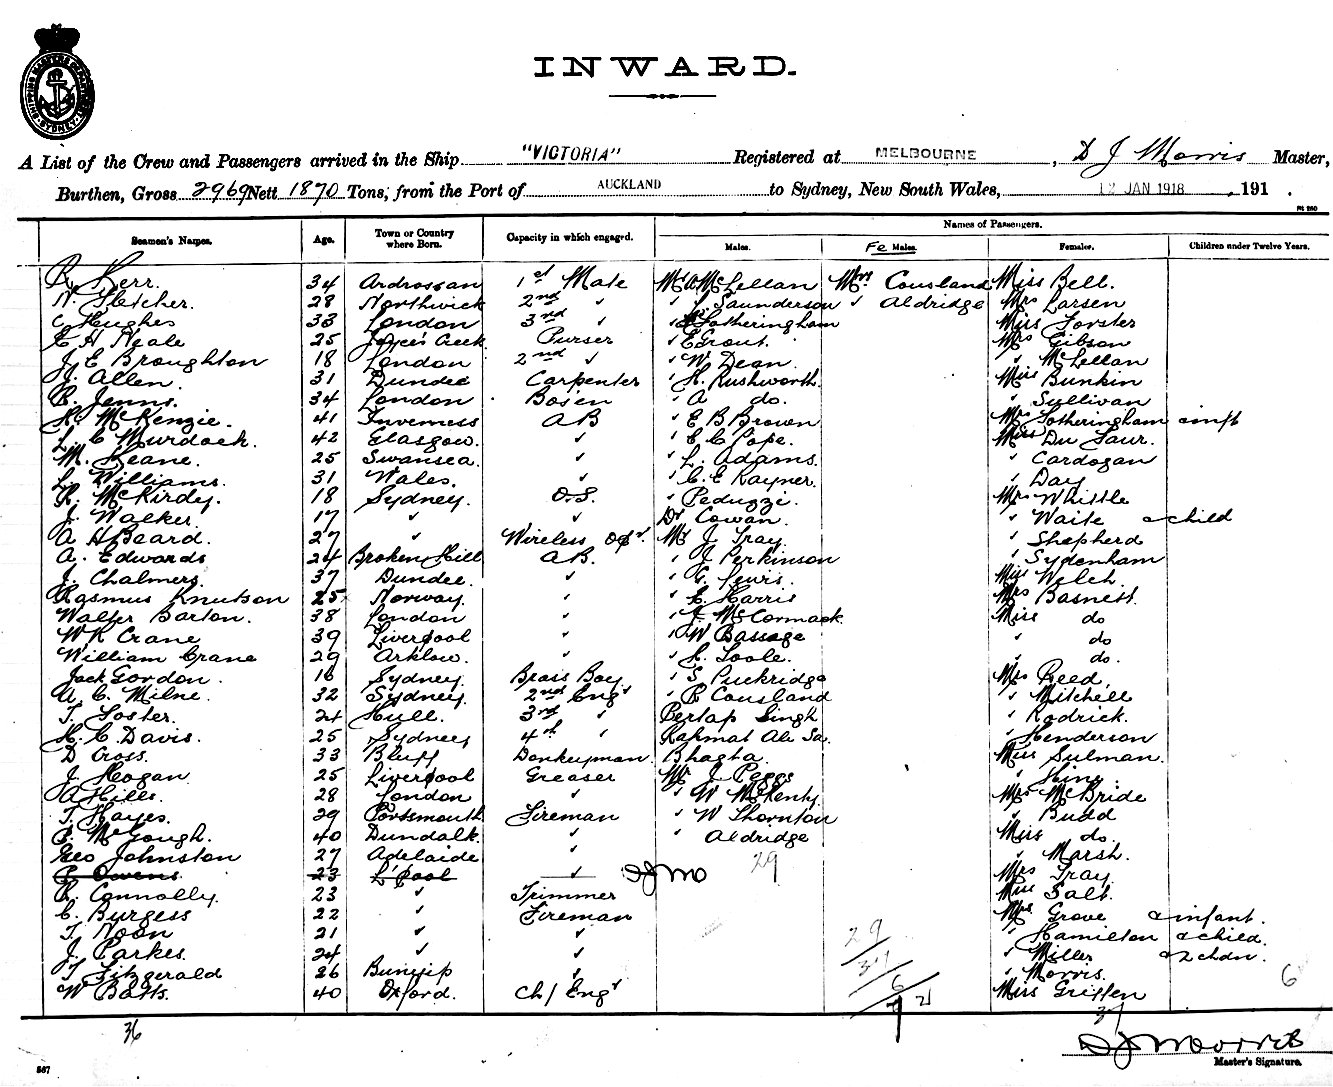 SHIPPING MASTER'S DEPARTMENT SYDNEY
INWARD.
A List of the Crew and Passengers arrived in the Ship "VICTORIA" Registered at MELBOURNE, D J Morris Master,
Burthen, Gross 2969 Nett 1870 Tons, from the Port of AUCKLAND to Sydney, New South Wales, 12 JAN 1918, 191 .
Names of Passengers.
Seamen's Names. Age. Town or Country where Born. Capacity in which engaged. Males. Fe Males. Females. Children under Twelve Years.
R Kerr. 34 Ardrossan 1st Mate Mr A McLellan Mrs Cousland Miss Bell.
N. Fletcher. 28 Northwick 2nd " " L Saunderson " Aldridge Mrs Larsen
C Hughes 33 London 3rd " " Fotheringham Miss Forster
C H Neale 25 Joyces Creek Purser " E Grout. Mrs Gibson
J E Broughton 18 London 2nd " " W Dean. " McLellan
J. Allen. 31 Dundee Carpenter " H. Rushworth. Miss Bunkin
R. Jenns. 34 London Bosen " A do. " Sullivan
K. McKenzie. 41 Inverness AB " E B Brown Mrs Fotheringham & inft
L. C Murdoch. 42 Glasgow. " " E C Pope. Miss Du Faur.
M. Keane. 25 Swansea. " " L. Adams. " Cardogan
L. Williams. 31 Wales. " " C. E Rayner. " Day
R. McKirdy. 18 Sydney. O.S. " Peduzzi. Mrs Whittle
J. Walker. 17 " " Dr Cowan. " Waite & child
A H Beard. 27 " Wireless Opr. Mr J Tray. " Shepherd
A. Edwards 24 Broken Hill AB. " J Perkinson " Sydenham
J. Chalmers. 37 Dundee. " " C. Lewis. Miss Welch.
Rasmus Knutson 25 Norway. " " E. Harris Mrs Basnett.
Walter Barton. 38 London " " J McCormack Miss do
W R Crane 39 Liverpool " " W Bassage " do
William Crane 29 Arklow. " " L. Toole. " do.
Jack Gordon. 16 Sydney. Brass Boy. " S Puckridge Mrs Reed.
A. C. Milne. 32 Sydney. 2nd Engr " R Cousland " Mitchell
T. Foster. 24 Hull. 3rd " Pertap Singh " Rodrick.
H. C. Davis. 25 Sydney 4th " Rahmat Ali Sa. " Henderson
D Cross. 33 Bluff Donkeyman Bhagta. Miss Sulman.
J. Hogan 25 Liverpool Greaser Mr J Peggs " King.
A Hills. 28 London " " W McKenty. Mrs McBride
T. Hayes. 29 Portsmouth Fireman " W Thornton " Budd
P. McGough. 40 Dundalk. " " Aldridge Miss do.
Geo Johnston 27 Adelaide " 29 " Marsh.
P Owens. 23 L'pool " DJMo Mrs Tray.
R. Connolly. 23 " Trimmer Miss Salt.
C. Burgess 22 " Fireman Mrs Grove & infant.
T. Noon 21 " " " Hamilton & child.
J. Parkes. 24 " " " Miller & 2 chdn.
T Fitzgerald 26 Bunyip " " Morris.
W Batts. 40 Oxford. Ch/ Engr Miss Griffen
29
37
6
72
6
36
37
D J Morris
Master's Signature.
567